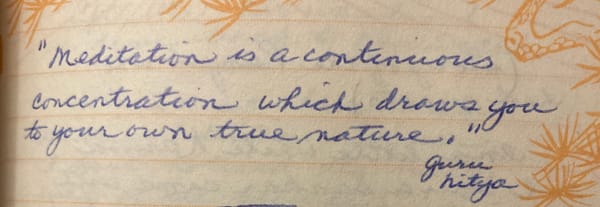 "Meditation is a continuous
concentration which draws you
to your own true nature."
Guru
Nitya